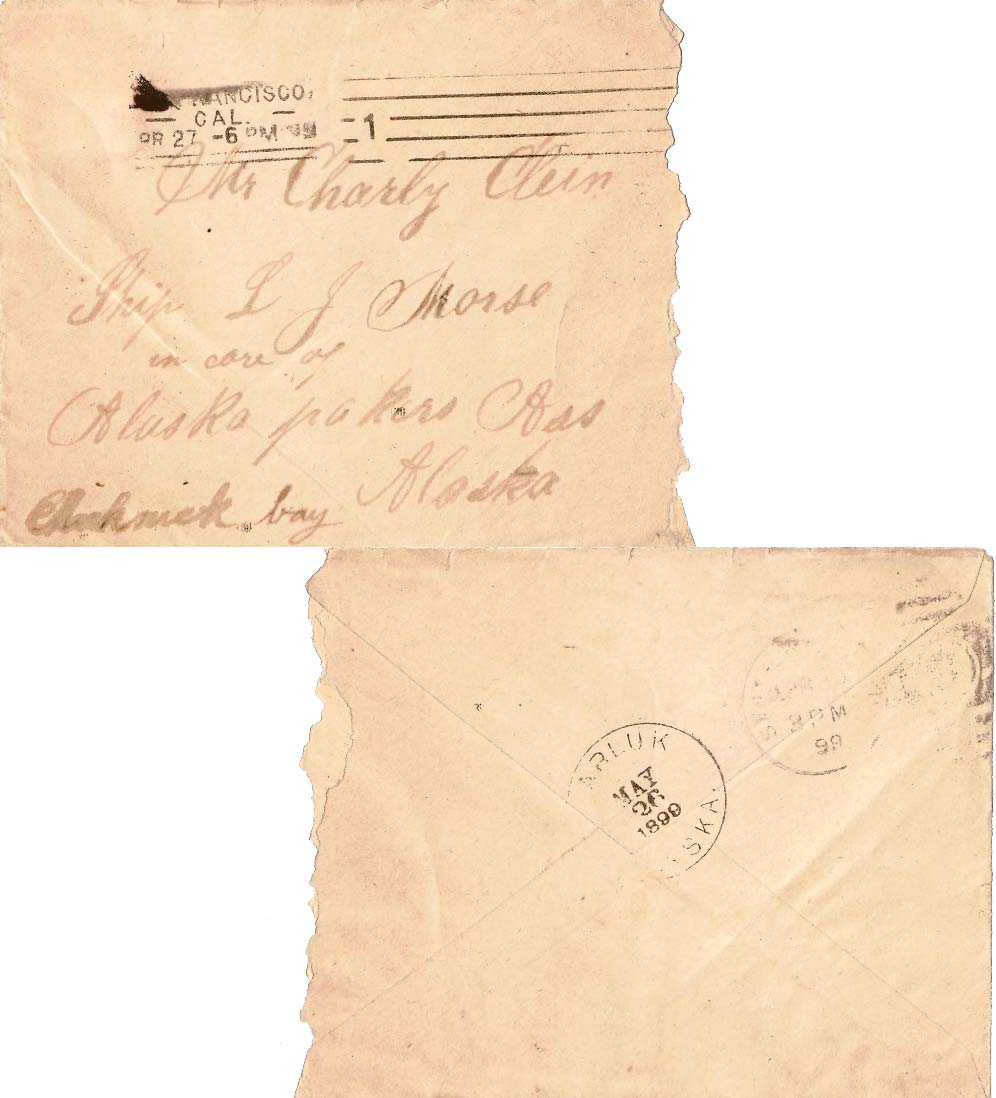 FRANCISCO,
CAL.
PR 27 -6 PM 99 1
Mr Charly Clein
Ship L J Morse
in care of
Alaska pakers Ass
Alaska
bay
ARLUK
MAY
26
1899
SKA.
8 PM
99